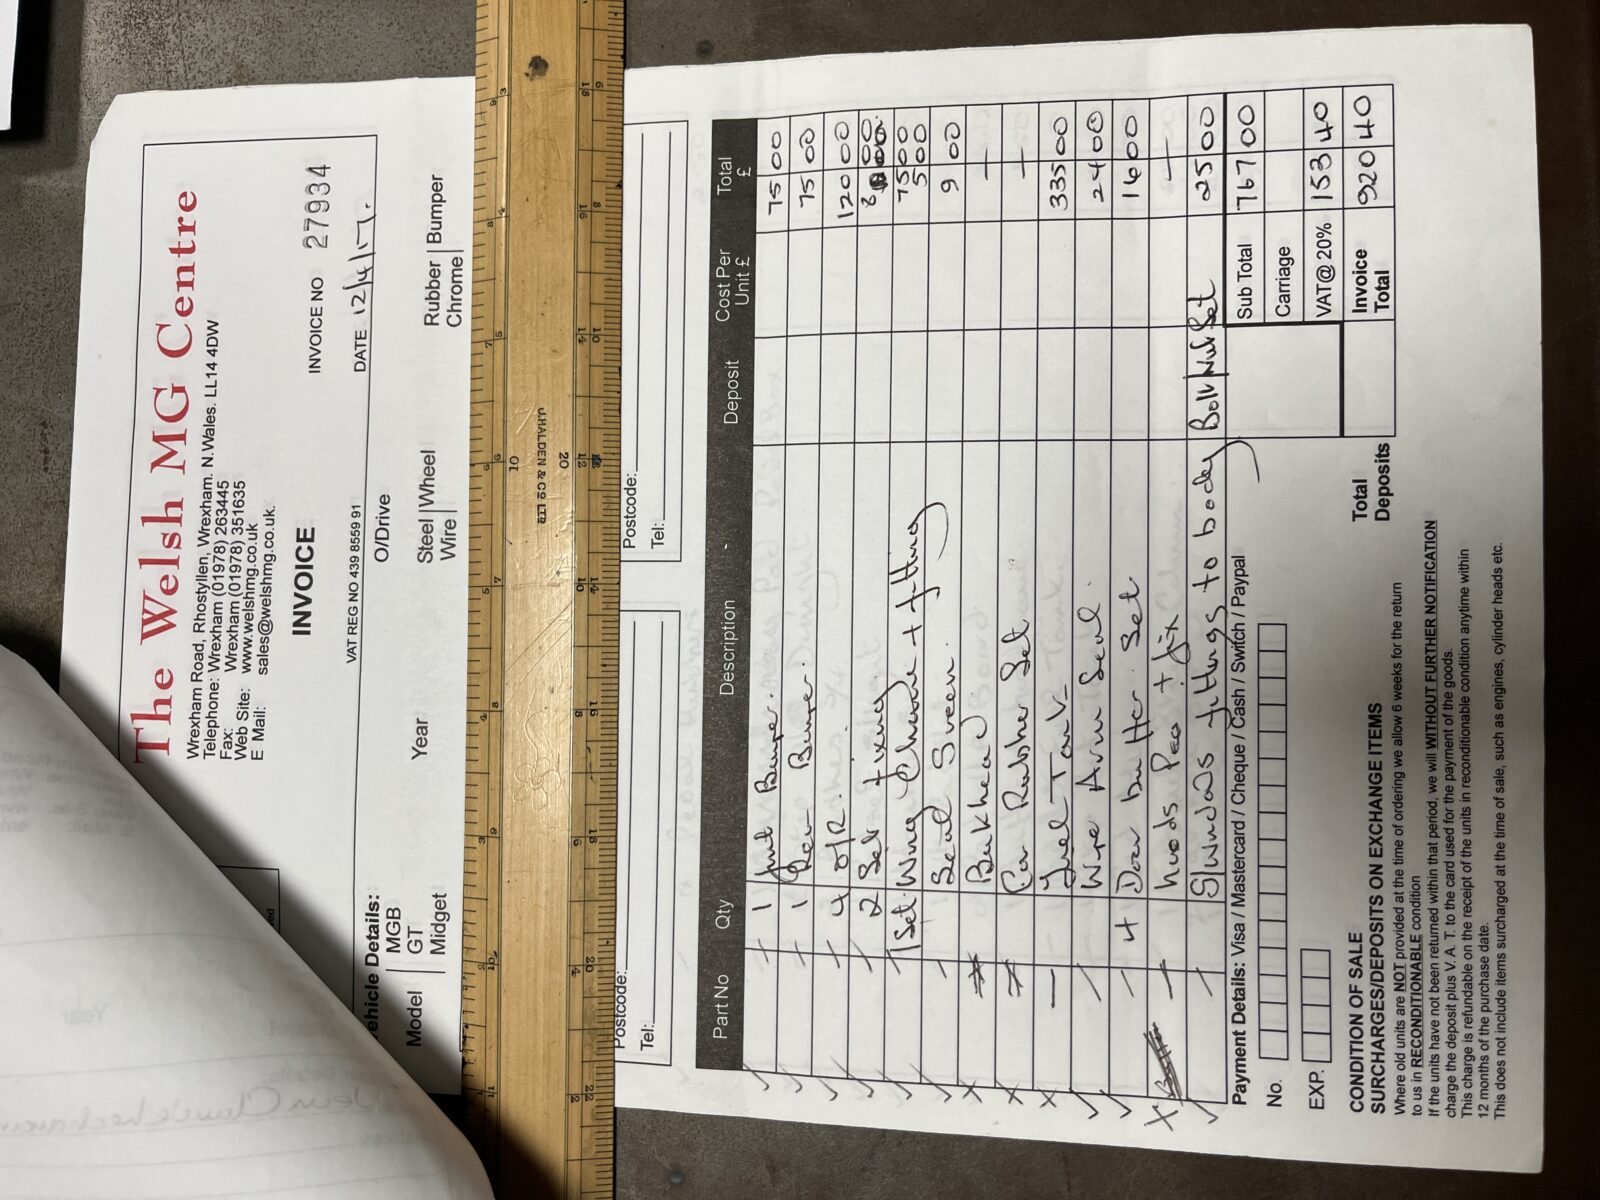 The Welsh MG Centre
Wrexham Road, Rhostyllen, Wrexham. N.Wales. LL14 4DW
Telephone: Wrexham (01978) 263445
Fax: Wrexham (01978) 351635
Web Site: www.welshmg.co.uk
E Mail: sales@welshmg.co.uk.
INVOICE
INVOICE NO 27934
VAT REG NO 439 8559 91
DATE 12/4/17.
Vehicle Details:
Model MGB GT Midget
Year
O/Drive
Steel Wire Wheel
Rubber Chrome Bumper
J.HALDEN & CO LTD
Postcode:
Tel:
Postcode:
Tel:
Part No Qty Description Deposit Cost Per Unit £ Total £
1 Front Bumper. 75 00
1 Rear Bumper. 75 00
4 O/R. 120 00
2 Set fixing 8 00
1 Set Wing Chrome + fitting 75 00 5 00
Seal Screen. 9 00
Bulkhead —
Rubber Set —
Fuel Tank 335 00
Wipe Arm Seal. 24 00
4 Door buffer Set 16 00
+ fix —
S/Wind/s fittings to body Bolt/Nut Set 25 00
Payment Details: Visa / Mastercard / Cheque / Cash / Switch / Paypal
No.
EXP.
Sub Total 767 00
Carriage
VAT@ 20% 153 40
Total Deposits
Invoice Total 920 40
CONDITION OF SALE
SURCHARGES/DEPOSITS ON EXCHANGE ITEMS
Where old units are NOT provided at the time of ordering we allow 6 weeks for the return
to us in RECONDITIONABLE condition
If the units have not been returned within that period, we will WITHOUT FURTHER NOTIFICATION
charge the deposit plus V. A. T. to the card used for the payment of the goods.
This charge is refundable on the receipt of the units in reconditionable condition anytime within
12 months of the purchase date.
This does not include items surcharged at the time of sale, such as engines, cylinder heads etc.